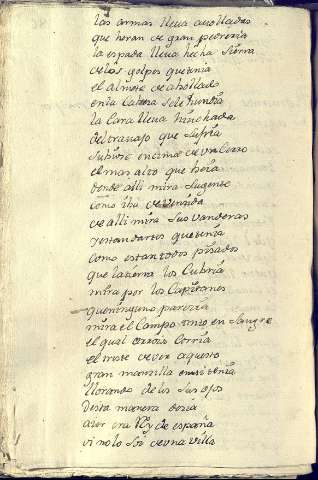 las armas lleva abolladas
que heran de gran pedreria
la espada lleva hecha sierra
de los golpes que tenia
el almete de abollado
en la cabeza se le hundia
la cara lleva hinchada
del travajo que sufria
subiose encima de un cerro
el mas alto que hera
donde alli mira su gente
como iba de vencida
de alli mira sus vanderas
y estandartes que tenia
como estan todos pisados
que la tierra los cubria
mira por los Capitanes
que ninguno parezia
mira el Campo tinto en sangre
el qual arroios corria
el triste de ver aquesto
gran manzilla en si tenia
llorando de los sus ojos
desta manera dezia
ayer era Rey de españa
oi no lo soi de una villa